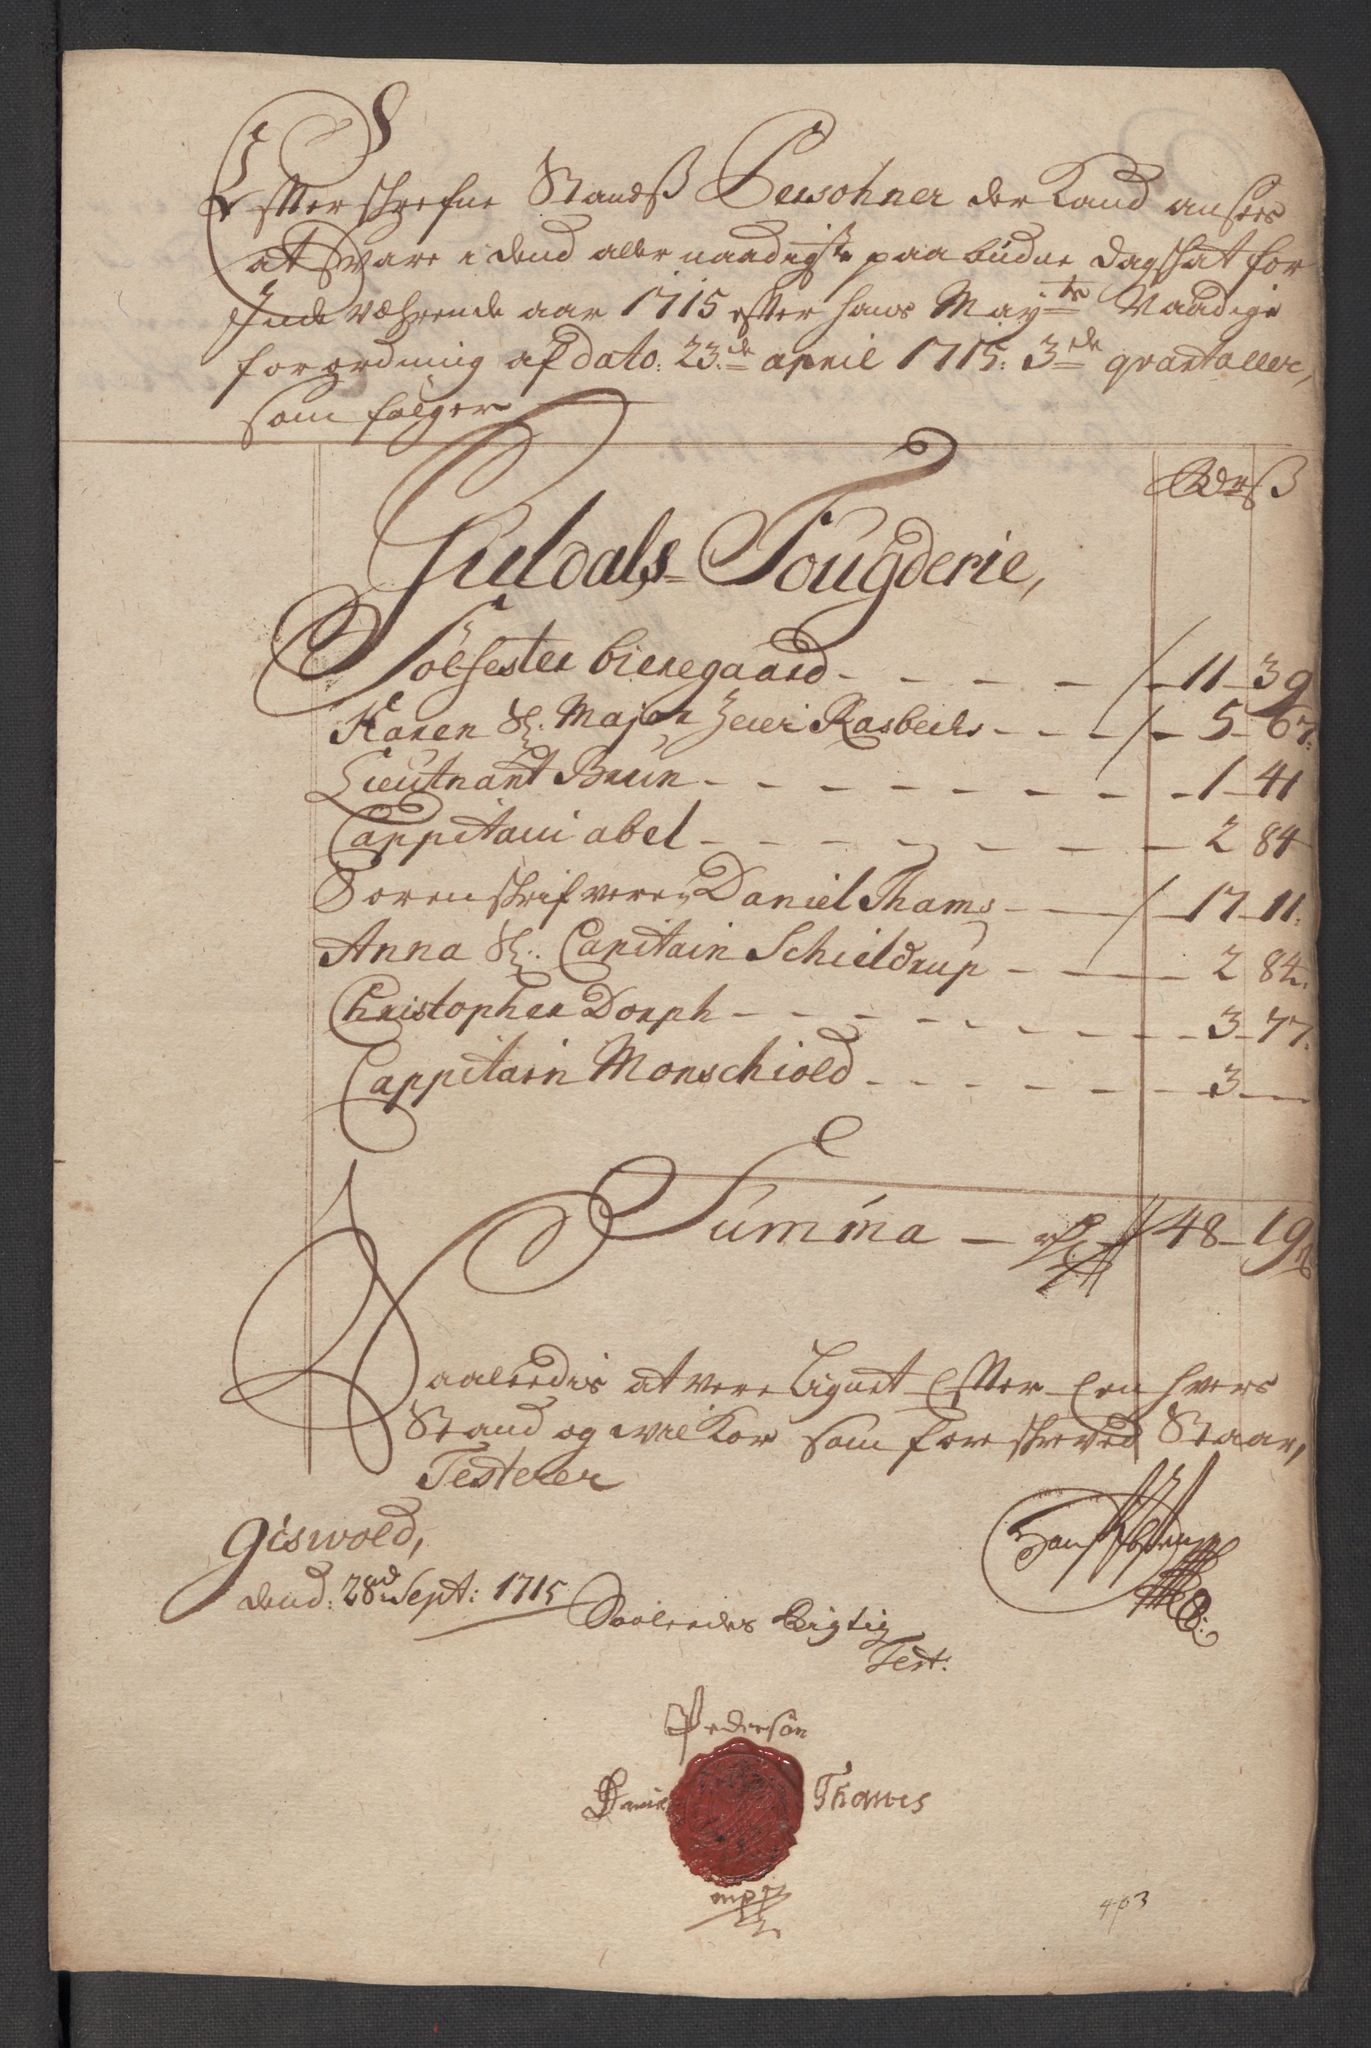 Efterschrefne Standß Persohner der Kand ansees
at svare i dend allernaadigste paabudne dagskat for
Indeværende aar 1715 efter hans Mayts Naadige
forordning af dato: 23de april 1715: 3de qvartaller,
som følger
Rdr ß
Guldals=Fougderie,
Tolfester bieregaard - - - - - 11 - 39
Karen Sl. Major Rasbechs - - - - 5 - 67:
Lieutnant Brun - - - - - - - - 1 - 41
Cappitain abel - - - - - - - - 2 84
Sorenschrifveren Daniel Thams - - - 17 - 11:
Anna Sl: Capitain Schieldrup - - - 2 84:
Christopher Dorph - - - - - - - - 3 - 77:
Cappitain Monschiold - - - - - - 3 -
Summa - 48 - 19
Saaleedis at vere lignet Efter Een hvers
Stand og wilkor som foreskreved Staar,
Testerer
Giswold,
dend: 28d Sept: 1715
Saaleedes Rigtig
Test:
Pedersøn
Daniel Thames
mp
403